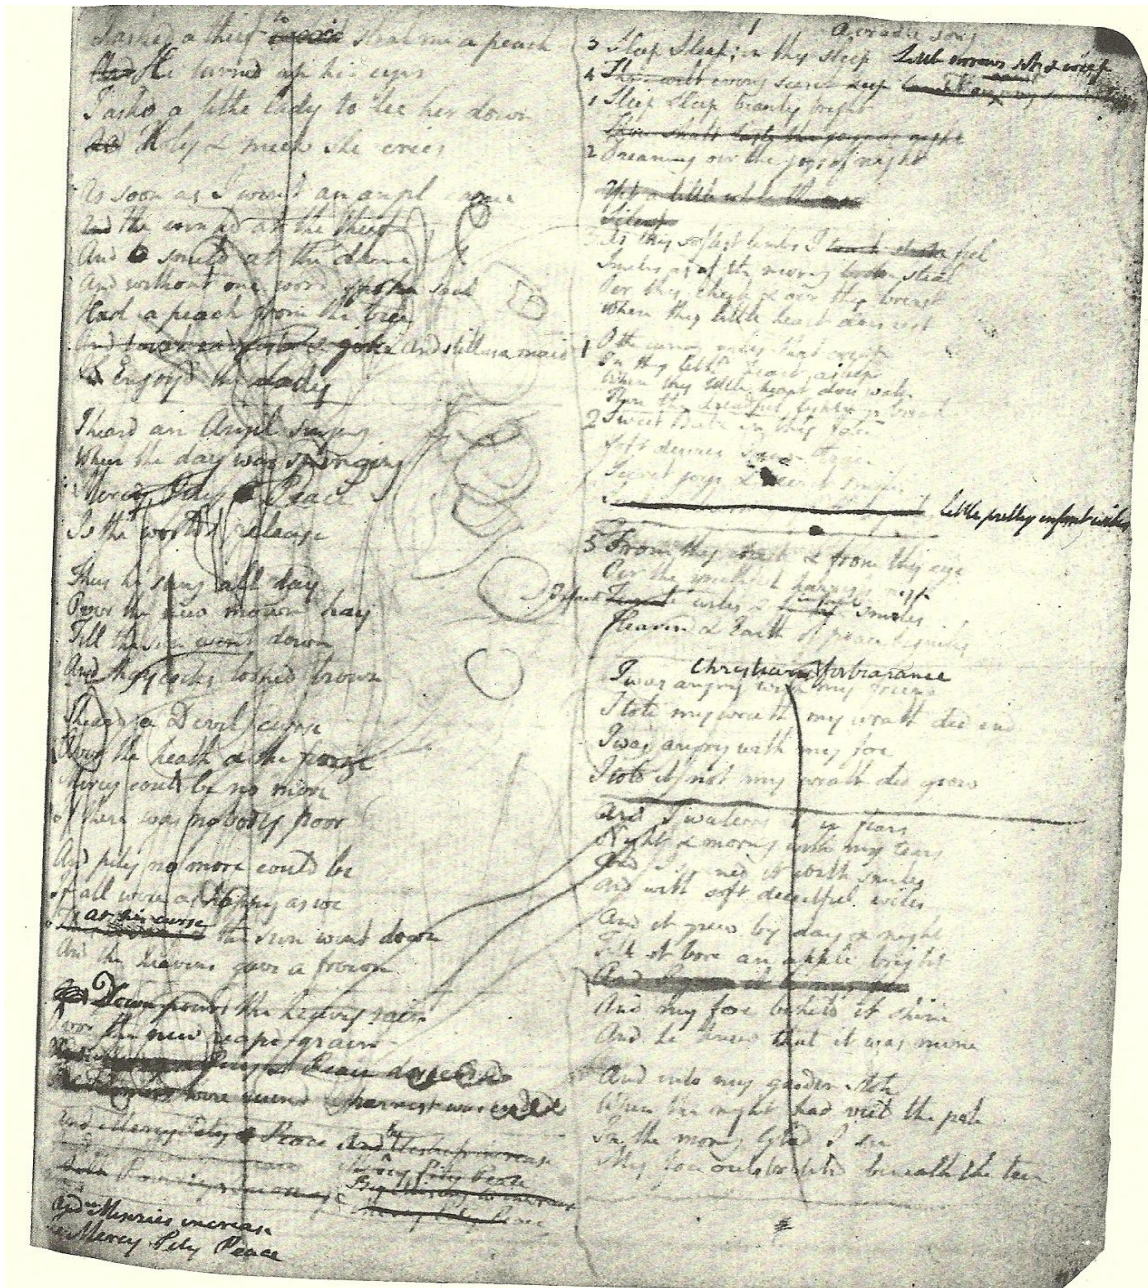 I asked a thief to steal me a peach
And He turned up his eyes
I askd a lithe lady to lie her down
And Holy & meek she cries
As soon as I went an angel came
And he wink'd at the thief
And smild at the dame
And without one word spoke said
Had a peach from the tree
And still as a maid
Enjoyd the lady
I heard an Angel singing
When the day was springing
Mercy Pity Peace
Is the worlds release
Thus he sung all day
Over the new mown hay
Till the sun went down
And haycocks looked brown
I heard a Devil curse
Over the heath & the furze
Mercy coud be no more
If there was nobody poor
And pity no more could be
If all were as happy as we
At his curse the sun went down
And the heavens gave a frown
Down pourd the heavy rain
Over the new reapd grain
And Mercy Pity Peace
And Miseries increase
Is Mercy Pity Peace
1 A cradle song
3 Sleep Sleep; in thy sleep Little sorrows sit & weep
4
1 Sleep Sleep beauty bright
2 Dreaming oer the joys of night
Yet a little while the
As thy softest limbs I feel
Smiles as of the morning steal
Oer thy cheek & oer thy breast
Where thy little heart does rest
O the cunning wiles that creep
In thy little heart asleep
When thy little heart does wake
Then the dreadful lightnings break
2 Sweet Babe in thy face
Soft desires I can trace
Secret joys & secret smiles
little pretty infant wiles
5 From thy cheek & from thy eye
Oer the youthful harvests nigh
Infant wiles & infant smiles
Heaven & Earth of peace beguiles
Christian forbearance
I was angry with my friend
I told my wrath my wrath did end
I was angry with my foe
I told it not my wrath did grow
And I waterd it in fears
Night & morning with my tears
And I sunned it with smiles
And with soft deceitful wiles
And it grew by day & night
Till it bore an apple bright
And my foe beheld it shine
And he knew that it was mine
And into my garden stole
When the night had veild the pole
In the morning Glad I see
My foe outstretchd beneath the tree